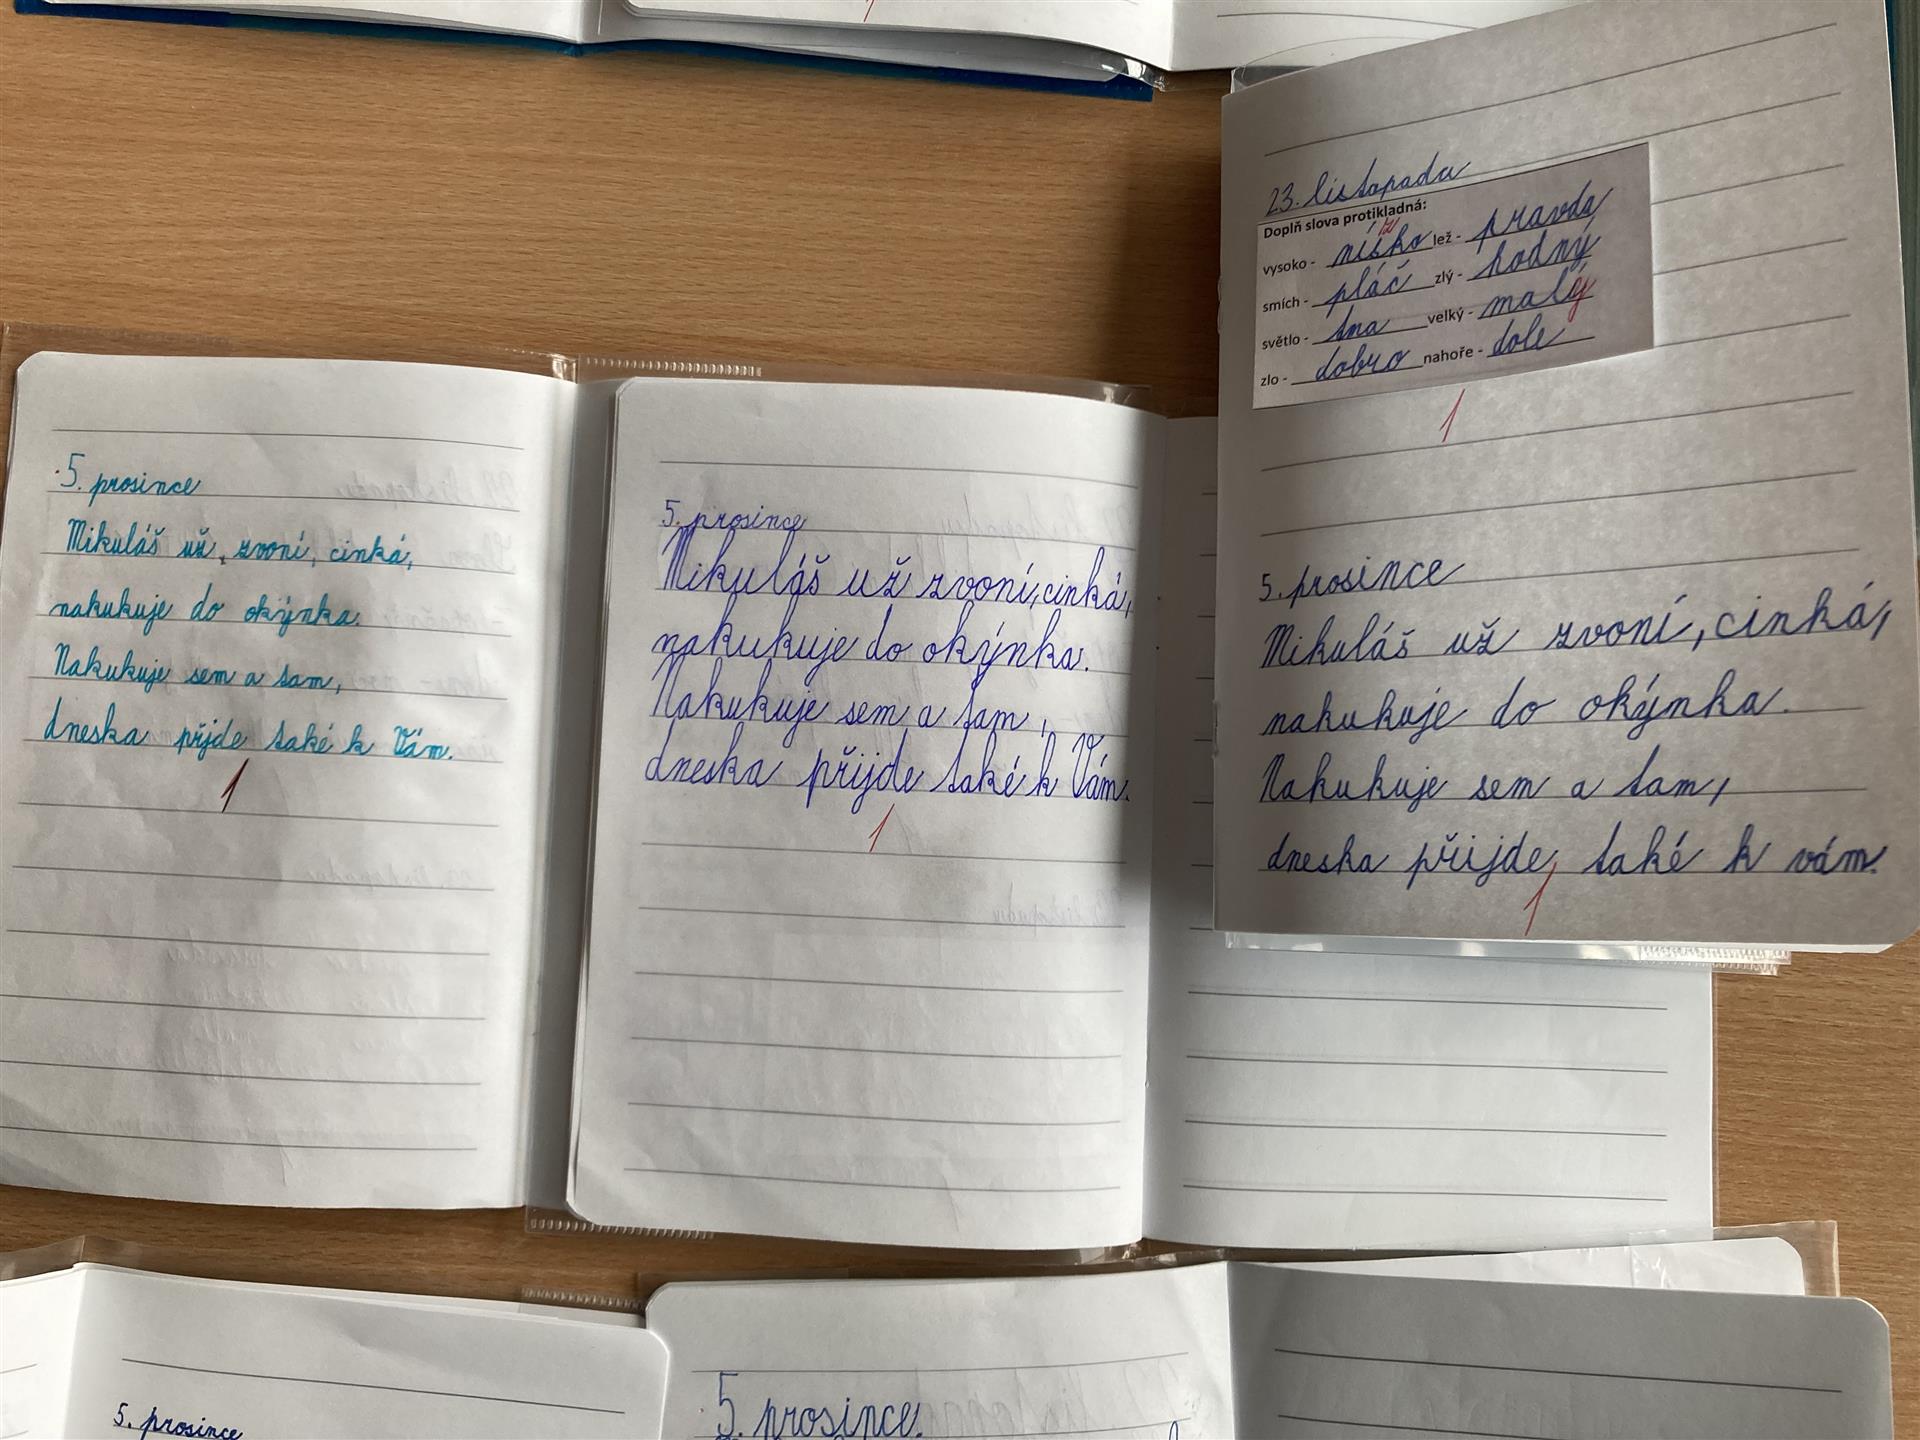 5. prosince
Mikuláš už, zvoní, cinká,
nakukuje do okýnka.
Nakukuje sem a tam,
dneska přjde také k Vám.
1
5. prosince
Mikuláš už zvoní, cinká,
nakukuje do okýnka.
Nakukuje sem a tam,
dneska přijde také k Vám.
1
23. listopadu
Doplň slova protikladná:
vysoko - nísko lež - pravda
z
smích - pláč zlý - hodný
světlo - tma velký - malý
zlo - dobro nahoře - dole
1
5. prosince
Mikuláš už zvoní, cinká,
nakukuje do okýnka.
Nakukuje sem a tam,
dneska přijde, také k vám.
1
5. prosince
5. prosince.